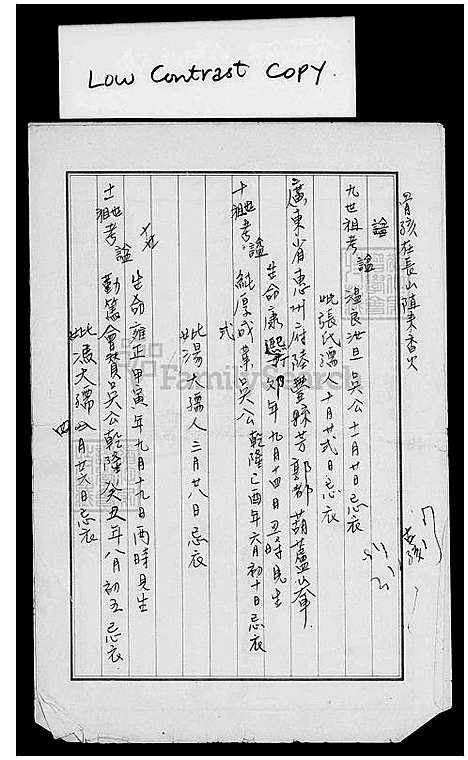 Low Contrast COPY
骨骸在長山隫東香火
諡
九世祖考諡溫良洪旦吳公十一月廿日忌衣
妣張氏孺人十月廿弍日忌衣
廣東省惠州府陸豐縣芳郭都葫蘆峯
生命康熙 卯年九月十四日丑時見生
十世祖考諡純厚成韋吳公乾隆己酉年六月初十日忌衣
弍
妣湯大孺人三月廿八日忌衣
生命雍正甲寅年九月十九日酉時見生
十一世祖考諡勤篤會賛吳公乾隆癸丑年八月初五忌衣
妣 大孺 月廿六日忌衣
四
FamilySearch